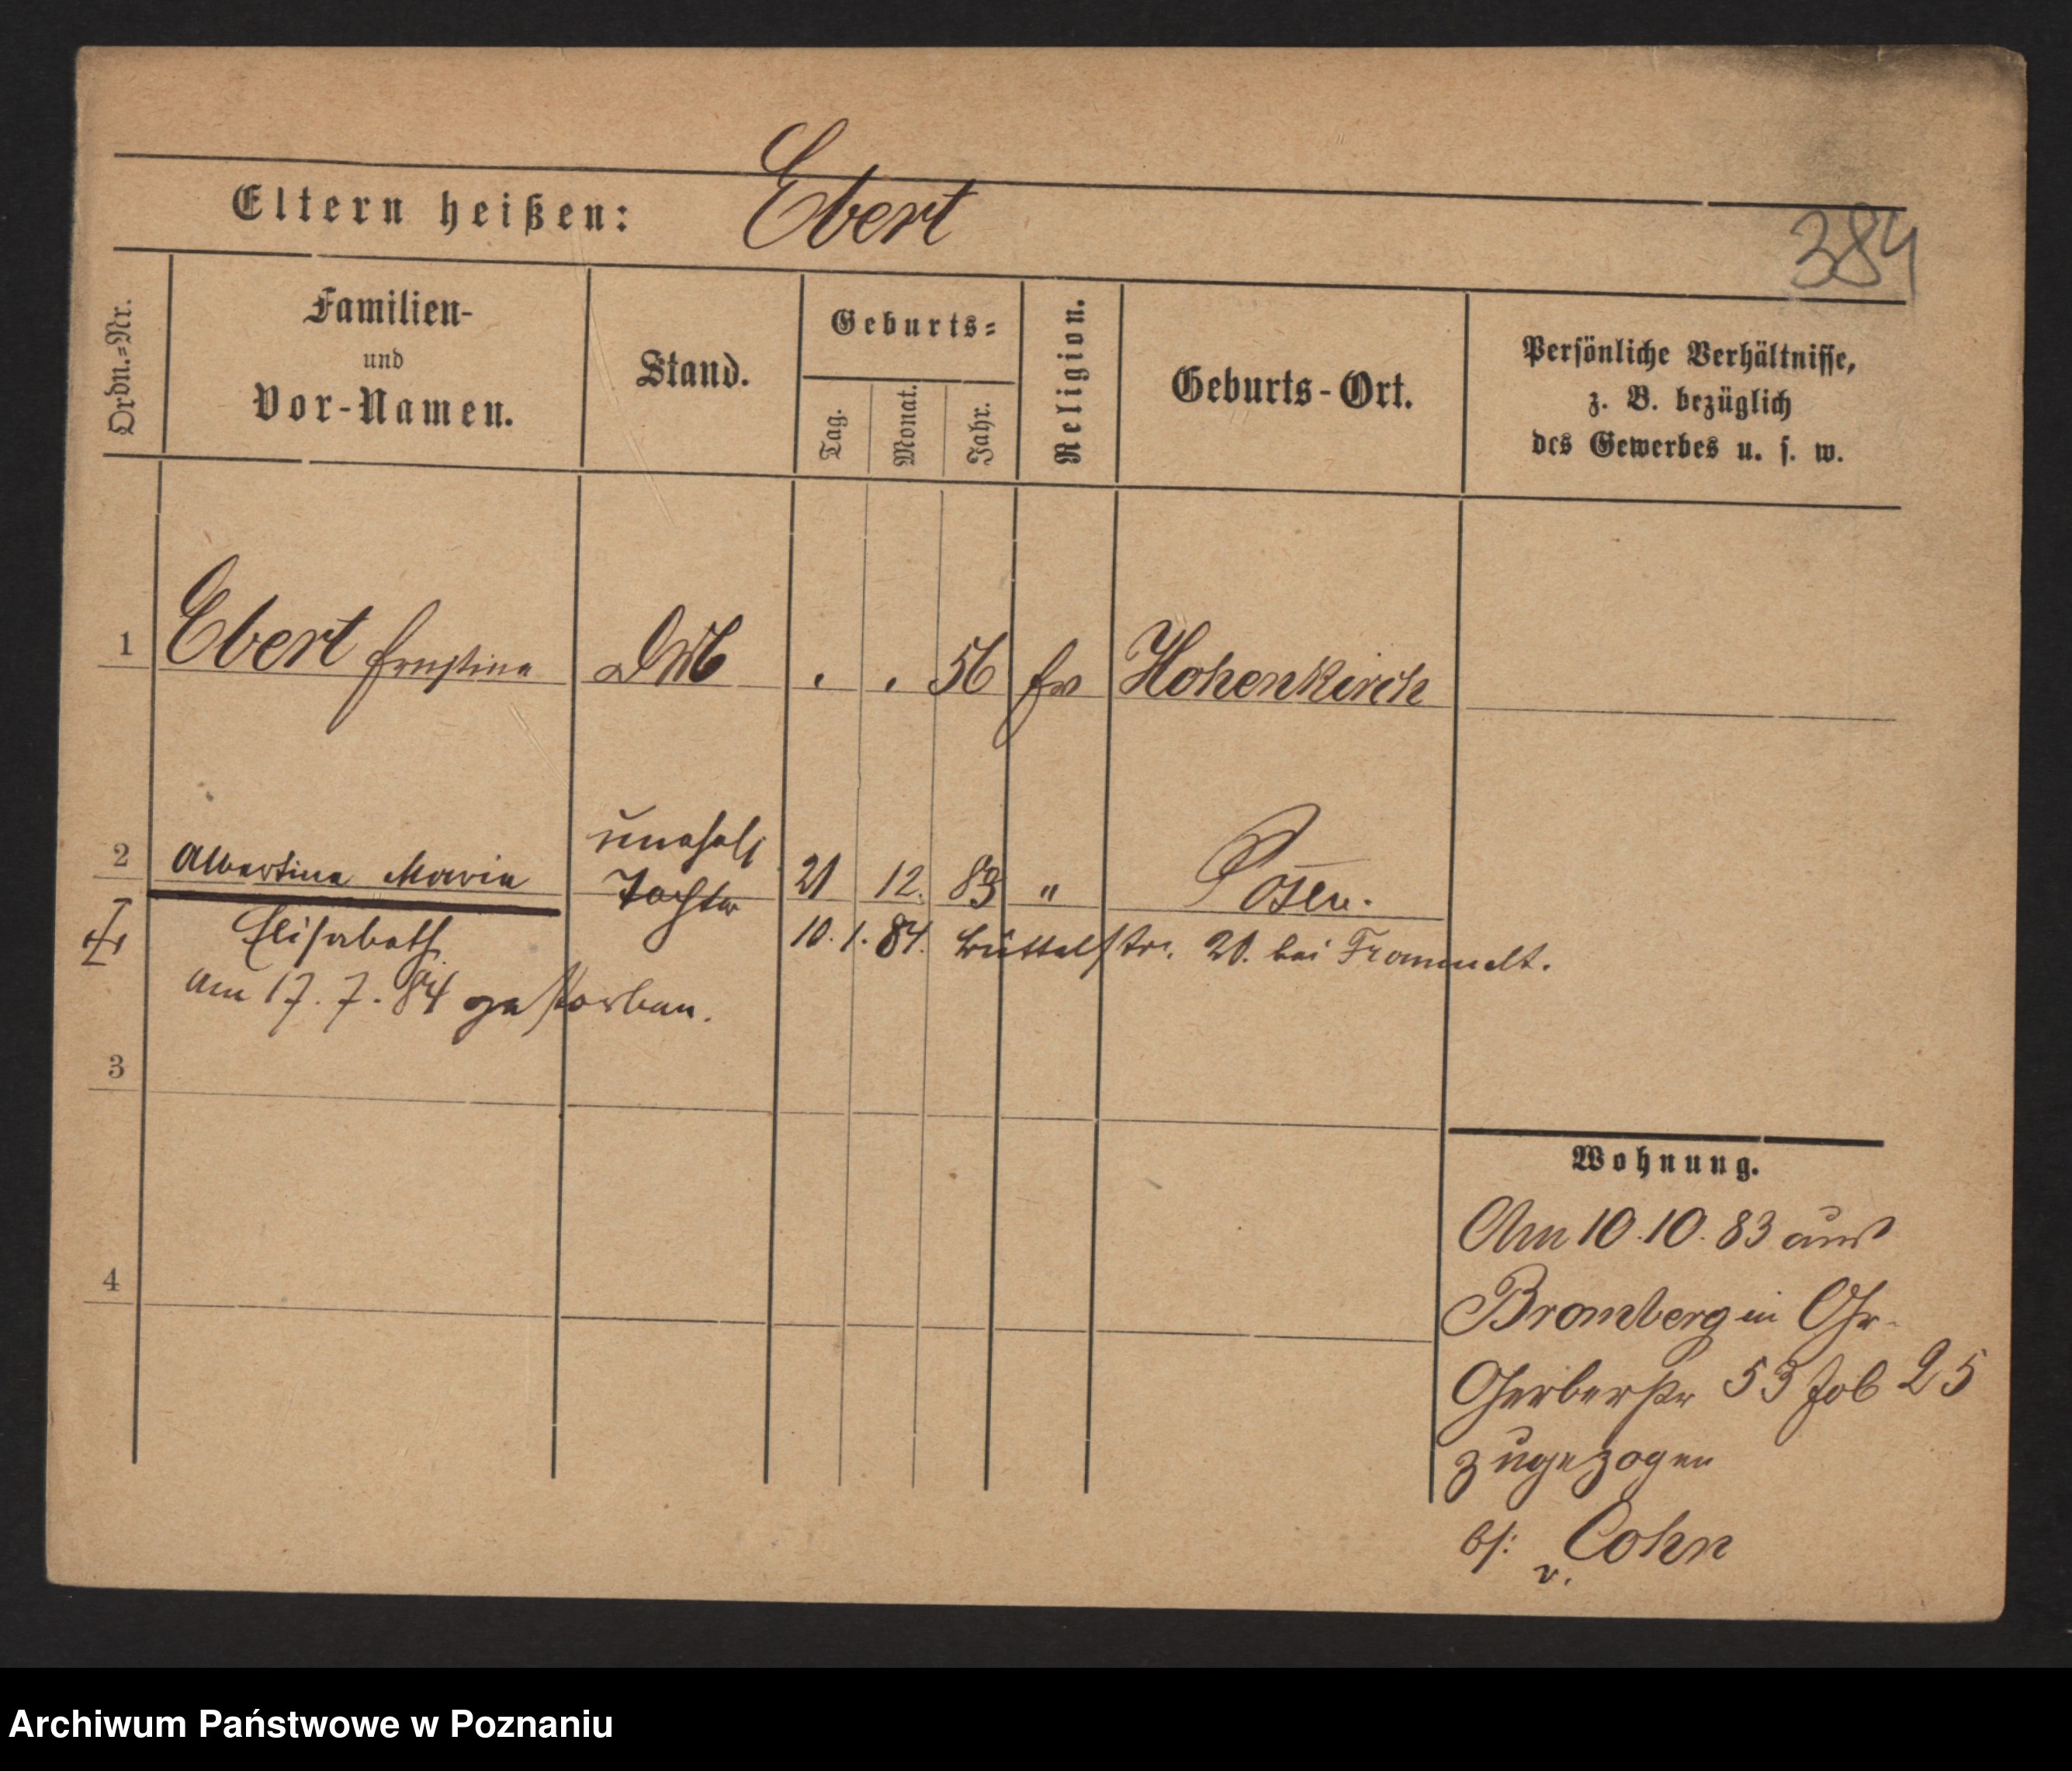 Eltern heißen: Ebert
384
Ordn.=Nr.
Familien-
und
Vor-Namen.
Stand.
Geburts=
Tag.
Monat.
Jahr.
Religion.
Geburts-Ort.
Persönliche Verhältnisse,
z. B. bezüglich
des Gewerbes u. s. w.
1 Ebert Ernstine . . 56 ev Hohenkirch
unehel.
2 Albertine Marie Tochter 21 12. 83 " Posen.
Elisabeth 10. 1. 84. Büttelstr. 20. bei Frommelt.
am 17. 7. 84 gestorben.
3
4
Wohnung.
Am 10.10.83 aus
Bromberg in Gr-
Gerberstr 53 fol 25
zugezogen
bei Cohn
v.
Archiwum Państwowe w Poznaniu